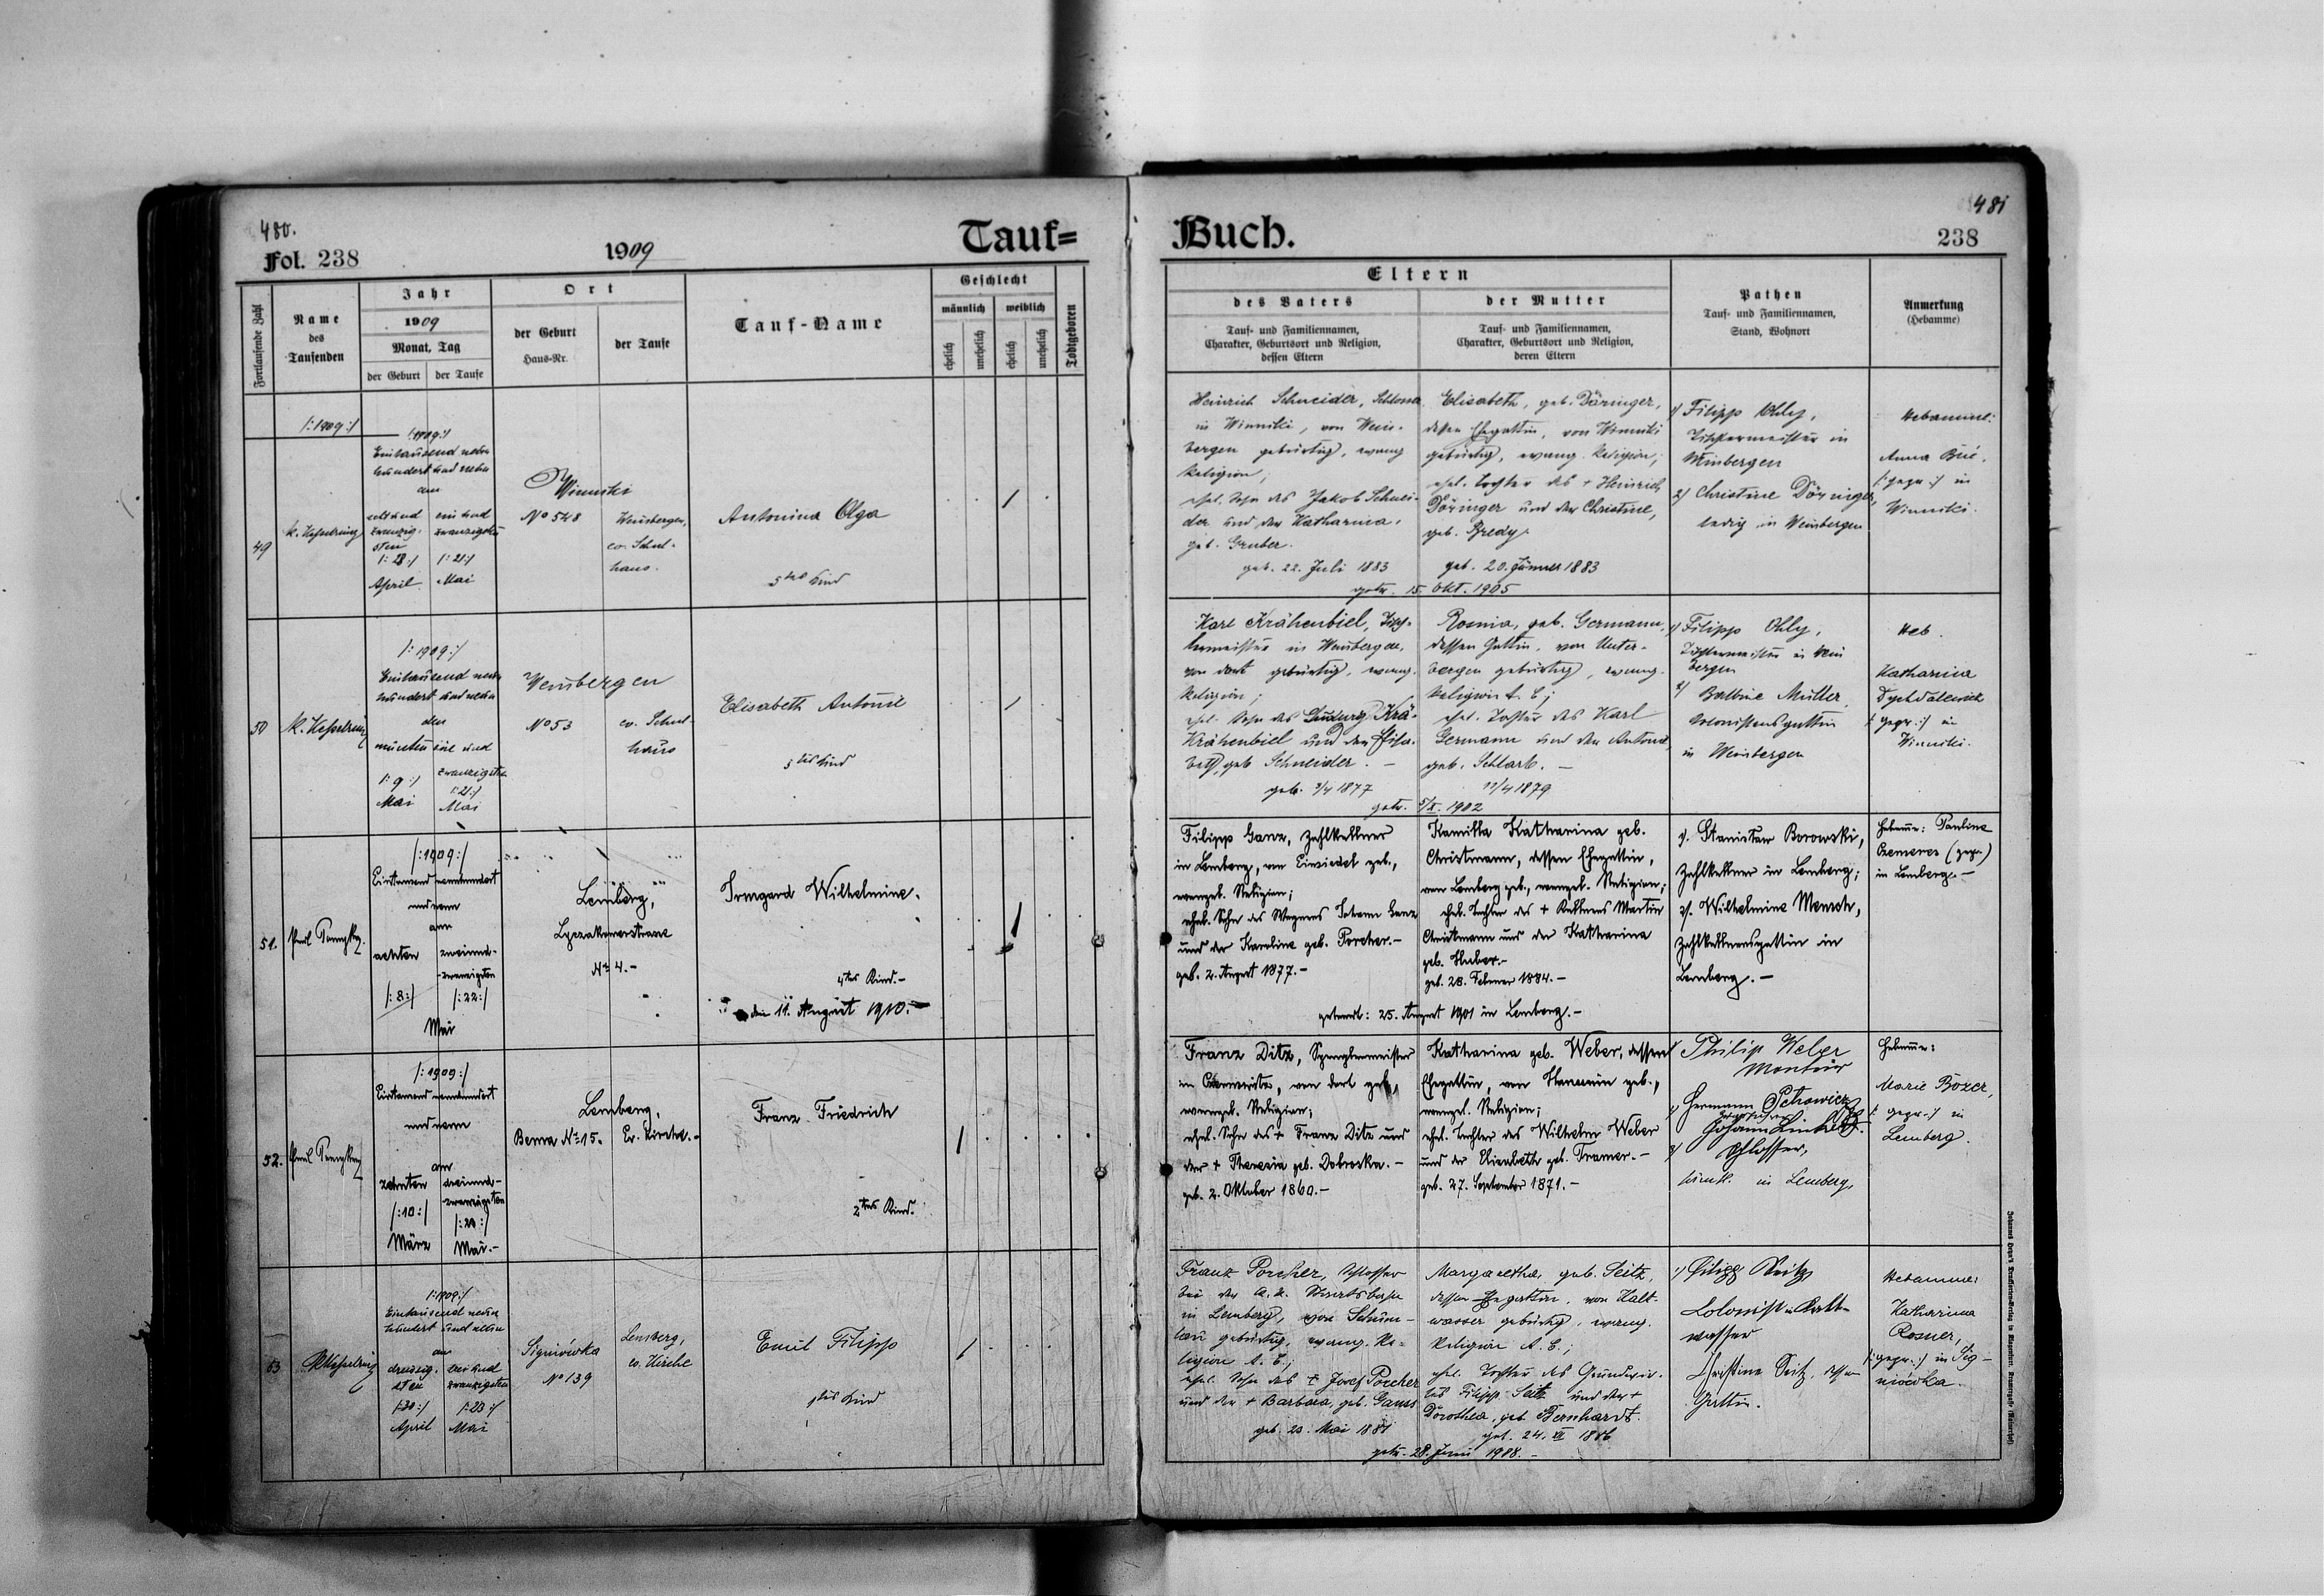 480.
Fol. 238
1909
Tauf=
Fortlaufende Zahl
Name
des
Taufenden
Jahr
1909
Monat, Tag
der Geburt
der Taufe
Ort
der Geburt
Haus-Nr.
der Taufe
Tauf-Name
Geschlecht
männlich
weiblich
ehelich
unehelich
ehelich
unehelich
Todtgeboren
/:1909:/
49
K. Kesselring
/:1909:/
Eintausend neun
hundert und neun
am
acht und
zwanzig-
sten
/:28:/
April
ein und
zwanzigsten
/:21:/
Mai
Winniki
No 548
Weinbergen,
ev. Schul-
haus.
Antonina Olga
5tes Kind
50
K. Kesselring
/:1909:/
Eintausend neun
hundert und neun
am
neunten
/:9:/
Mai
ein und
zwanzigsten
/:21:/
Mai
Weinbergen
No 53
ev. Schul-
haus
Elisabeth Antonie
5tes Kind
51.
/:1909:/
Eintausend neunhundert
und neun
am
achten
/:8:/
zweiund-
zwanzigsten
/:22:/
Mai
Lemberg,
Lyczakowerstrasse
No 4.-
Irmgard Wilhelmine.
4tes Kind.-
den 11. August 1910.-
52.
/:1909:/
Eintausend neunhundert
und neun
am
zehnten
/:10:/
März
dreiund-
zwanzigsten
Mai.-
Lemberg,
Bema No 15.
Ev. Kirche.-
Franz Friedrich
2tes Kind.
53
Kesselring
/:1909:/
Eintausend neun
hundert und neun
am
dreissig-
sten
/:30:/
April
drei und
zwanzigsten
/:23:/
Mai
Signiówka
No 139
Lemberg,
ev. Kirche
Emil Filipp
1tes Kind
Buch.
481
238
Eltern
des Vaters
Tauf- und Familiennamen,
Charakter, Geburtsort und Religion,
dessen Eltern
der Mutter
Tauf- und Familiennamen,
Charakter, Geburtsort und Religion,
deren Eltern
Pathen
Tauf- und Familiennamen,
Stand, Wohnort
Anmerkung
(Hebamme)
Heinrich Schneider,
in Winniki, von Wein-
bergen gebürtig, evang
Religion;
ehel. Sohn des Jakob Schnei-
der und der Katharina,
geb. Gruber.
geb. 22. Juli 1883
Elisabeth, geb. Döringer,
dessen Ehegattin, von Winniki
gebürtig, evang. Religion;
ehel. Tochter des + Heinrich
Döringer und der Christine,
geb. Bredy.
geb. 20. Jänner 1883
getr. 15. Okt. 1905
1) Filipp Ohly,
Tischlermeister in
Weinbergen
2) Christine Döringer,
ledig in Weinbergen
Hebamme:
Anna
/: gepr :/ in
Winniki.
Karl Krähenbiel, Tisch-
lermeister in Weinbergen,
von dort gebürtig, evang.
Religion;
ehel. Sohn des Ludwig Krä-
Krähenbiel und der Elisa-
beth, geb Schneider. -
geb. 3/4 1877
Rosina, geb. Germann,
dessen Gattin, von Unter-
bergen gebürtig, evang.
Religion A. C.;
ehel. Tochter des Karl
Germann und der Antonia,
geb. Schlarb. -
11/4 1879
getr. 5/X. 1902
1) Filipp Ohly,
Tischlermeister in Wein
bergen
2) Müller,
Kolonistensgattin
in Weinbergen
Heb.
Katharina
/: gepr. :/ in
Winniki.
Filipp Ganz, Zahlkellner
in Lemberg, von Einsiedel geb.,
evangel. Religion;
ehel. Sohn des Wagners Johann Ganz
und der Karoline geb. Porcher.-
geb. 2. August 1877.-
Kamilla Katharina geb.
Christmann, dessen Ehegattin,
von Lemberg geb., evangel. Religion;
ehel. Tochter des + Kellners Martin
Christmann und der Katharina
geb. Huber.-
geb. 28. Februar 1884.-
getraut: 25. August 1901 in Lemberg.-
1. Stanislaw Borowski,
Zahlkellner in Lemberg;
2. Wilhelmine Mensch,
Zahlkellnersgattin in
Lemberg. -
Hebamme: Pauline
(gepr.)
in Lemberg.-
Franz Ditz, Spenglermeister
in Czernowitz, von dort geb.,
evangel. Religion;
ehel. Sohn des + Franz Ditz und
der + Theresia geb. Dobroska. -
geb. 2. Oktober 1860.-
Katharina geb. Weber, dessen
Ehegattin, von Hanunin geb.,
evangel. Religion;
ehel. Tochter des Wilhelm Weber
und der Elisabeth geb. Tramer.-
geb. 27. September 1871.-
Philip Weber
Monteur
Hermann Petrowicz
Johann
Schlosser,
sämtl. in Lemberg,
Hebamme:
Marie
/: gepr. :/ in
Lemberg.
Franz Porcher, Schlosser
bei der k. k. Staatsbahn
in Lemberg, von Schum-
lau gebürtig, evang. Re-
ligion A. C.;
ehel. Sohn des + Josef Porcher
und der + Barbara, geb. Ganss
geb. 23. Mai 1881
Margaretha, geb. Seitz,
dessen Ehegattin, von Kalt-
wasser gebürtig, evang.
Religion A. C.;
ehel. Tochter des Grundwir-
tes Filipp Seitz und der +
Dorothea, geb Bernhardt.
geb. 24. VII 1886
getr. 28. Juni 1908.-
1) Filipp Seitz
Kolonist in Kalt-
wasser
Christina Seitz, dessen
Gattin.
Hebamme:
Katharina
Rosner,
/: gepr. :/ in Sig-
niówka.